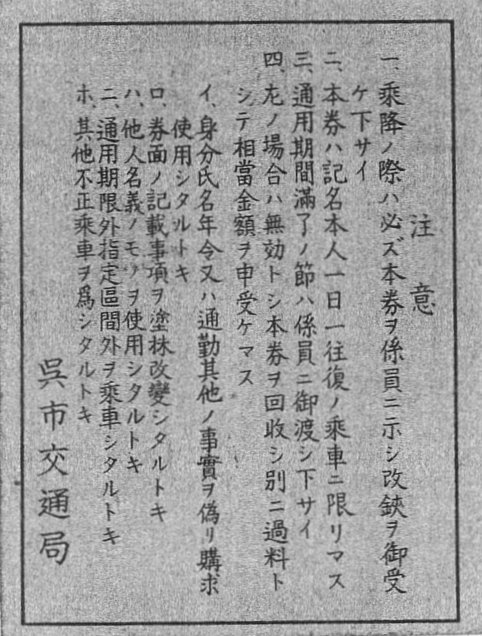 注意
一、乗降ノ際ハ必ズ本券ヲ係員ニ示シ改鋏ヲ御受
ケ下サイ
二、本券ハ記名本人一日一往復ノ乗車ニ限リマス
三、通用期間満了ノ節ハ係員ニ御渡シ下サイ
四、左ノ場合ハ無効トシ本券ヲ回收シ別ニ過料ト
シテ相當金額ヲ申受ケマス
イ、身分氏名年令又ハ通勤其他ノ事實ヲ偽リ購求
使用シタルトキ
ロ、券面ノ記載事項ヲ塗抹改變シタルトキ
ハ、他人名義ノモノヲ使用シタルトキ
ニ、通用期限外指定區間外ヲ乗車シタルトキ
ホ、其他不正乗車ヲ爲シタルトキ
呉市交通局